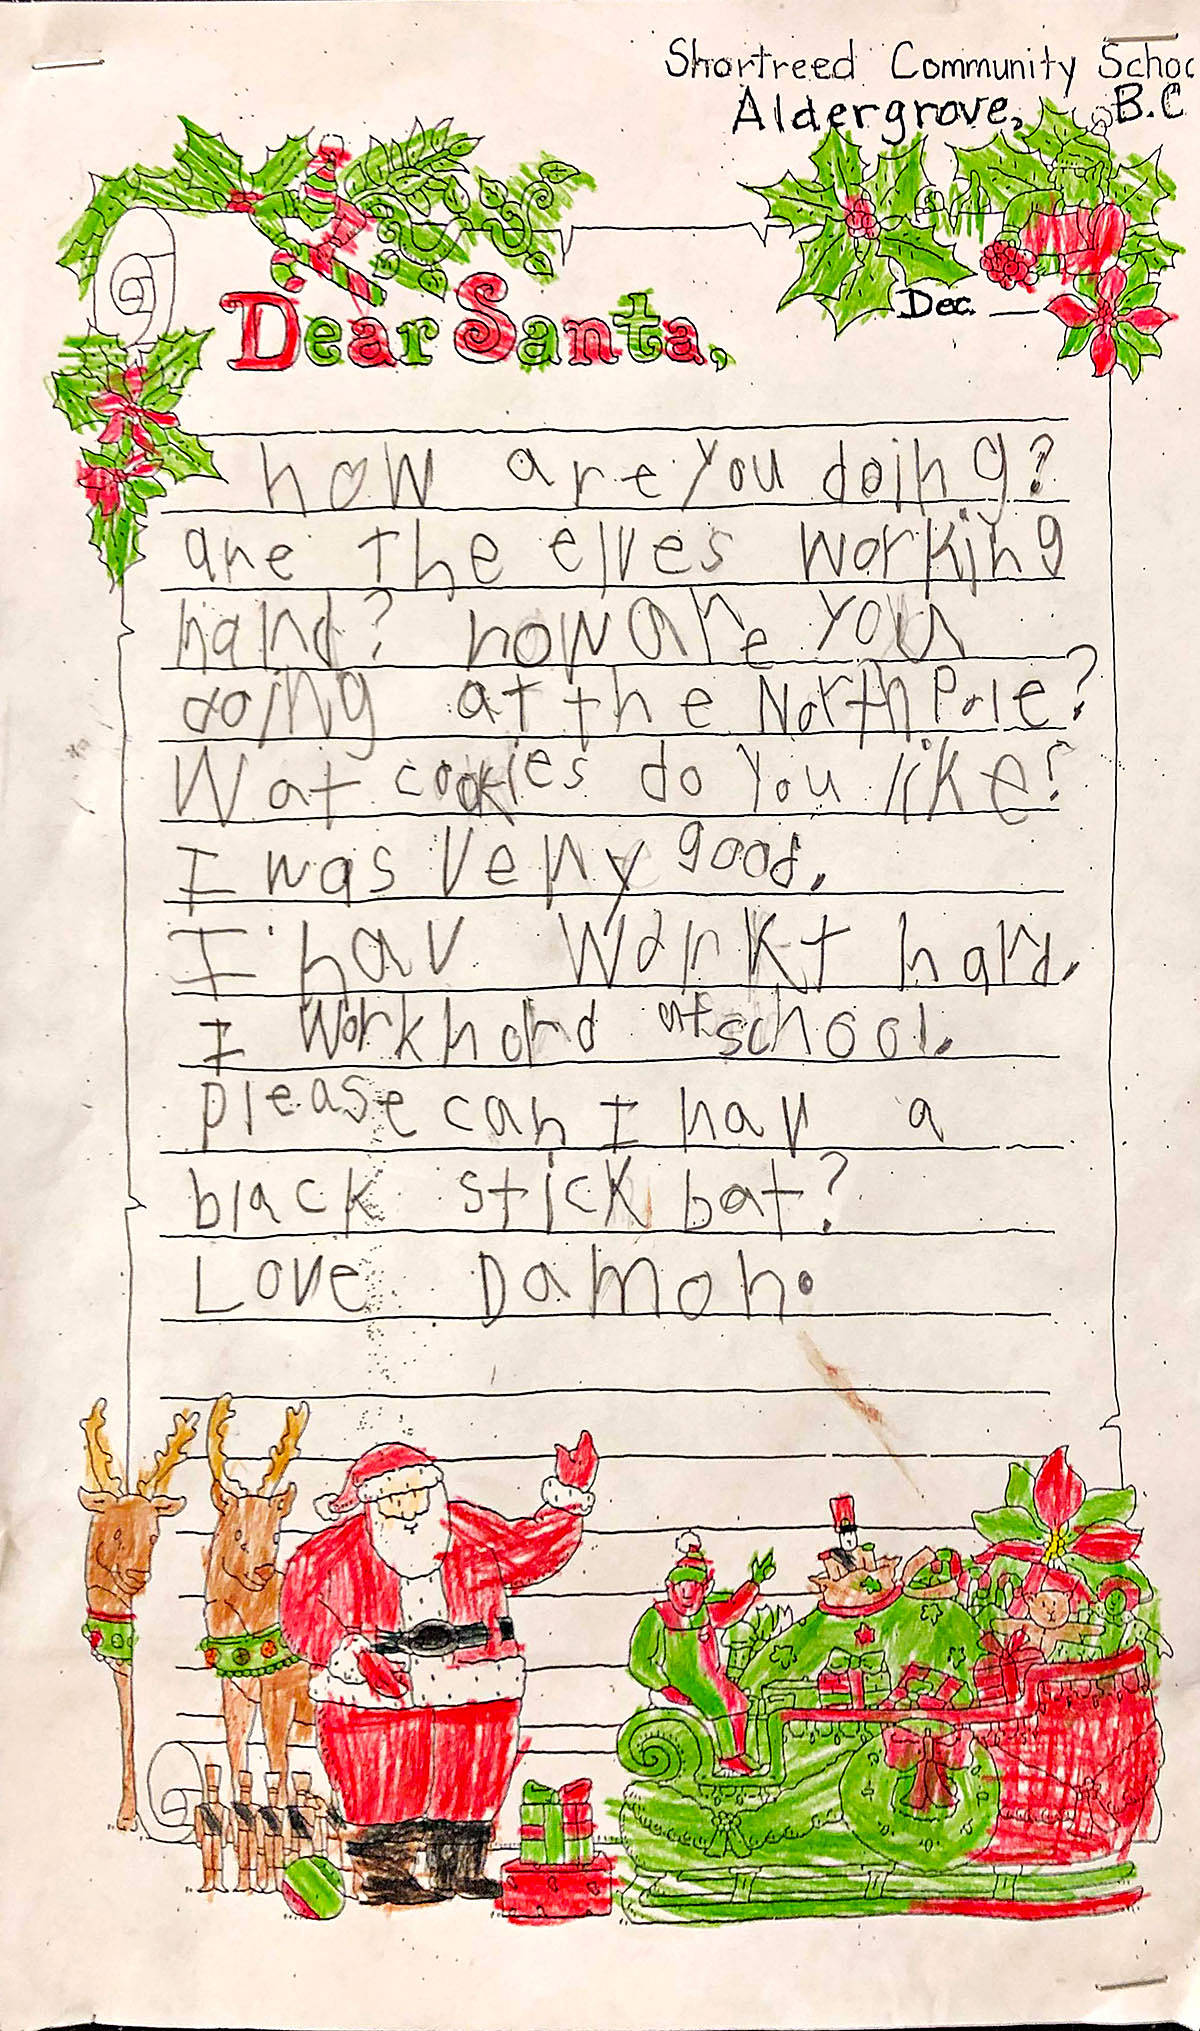 Shortreed Community Schoo
Aldergrove, B.C
Dec. __
Dear Santa,
how are you doing?
are the elves working
hard? how are you
doing at the North Pole?
Wat cookies do you like?
I was very good.
I hav workt hard.
I work hard at school.
please can I hav a
black stick bat?
Love Damon.